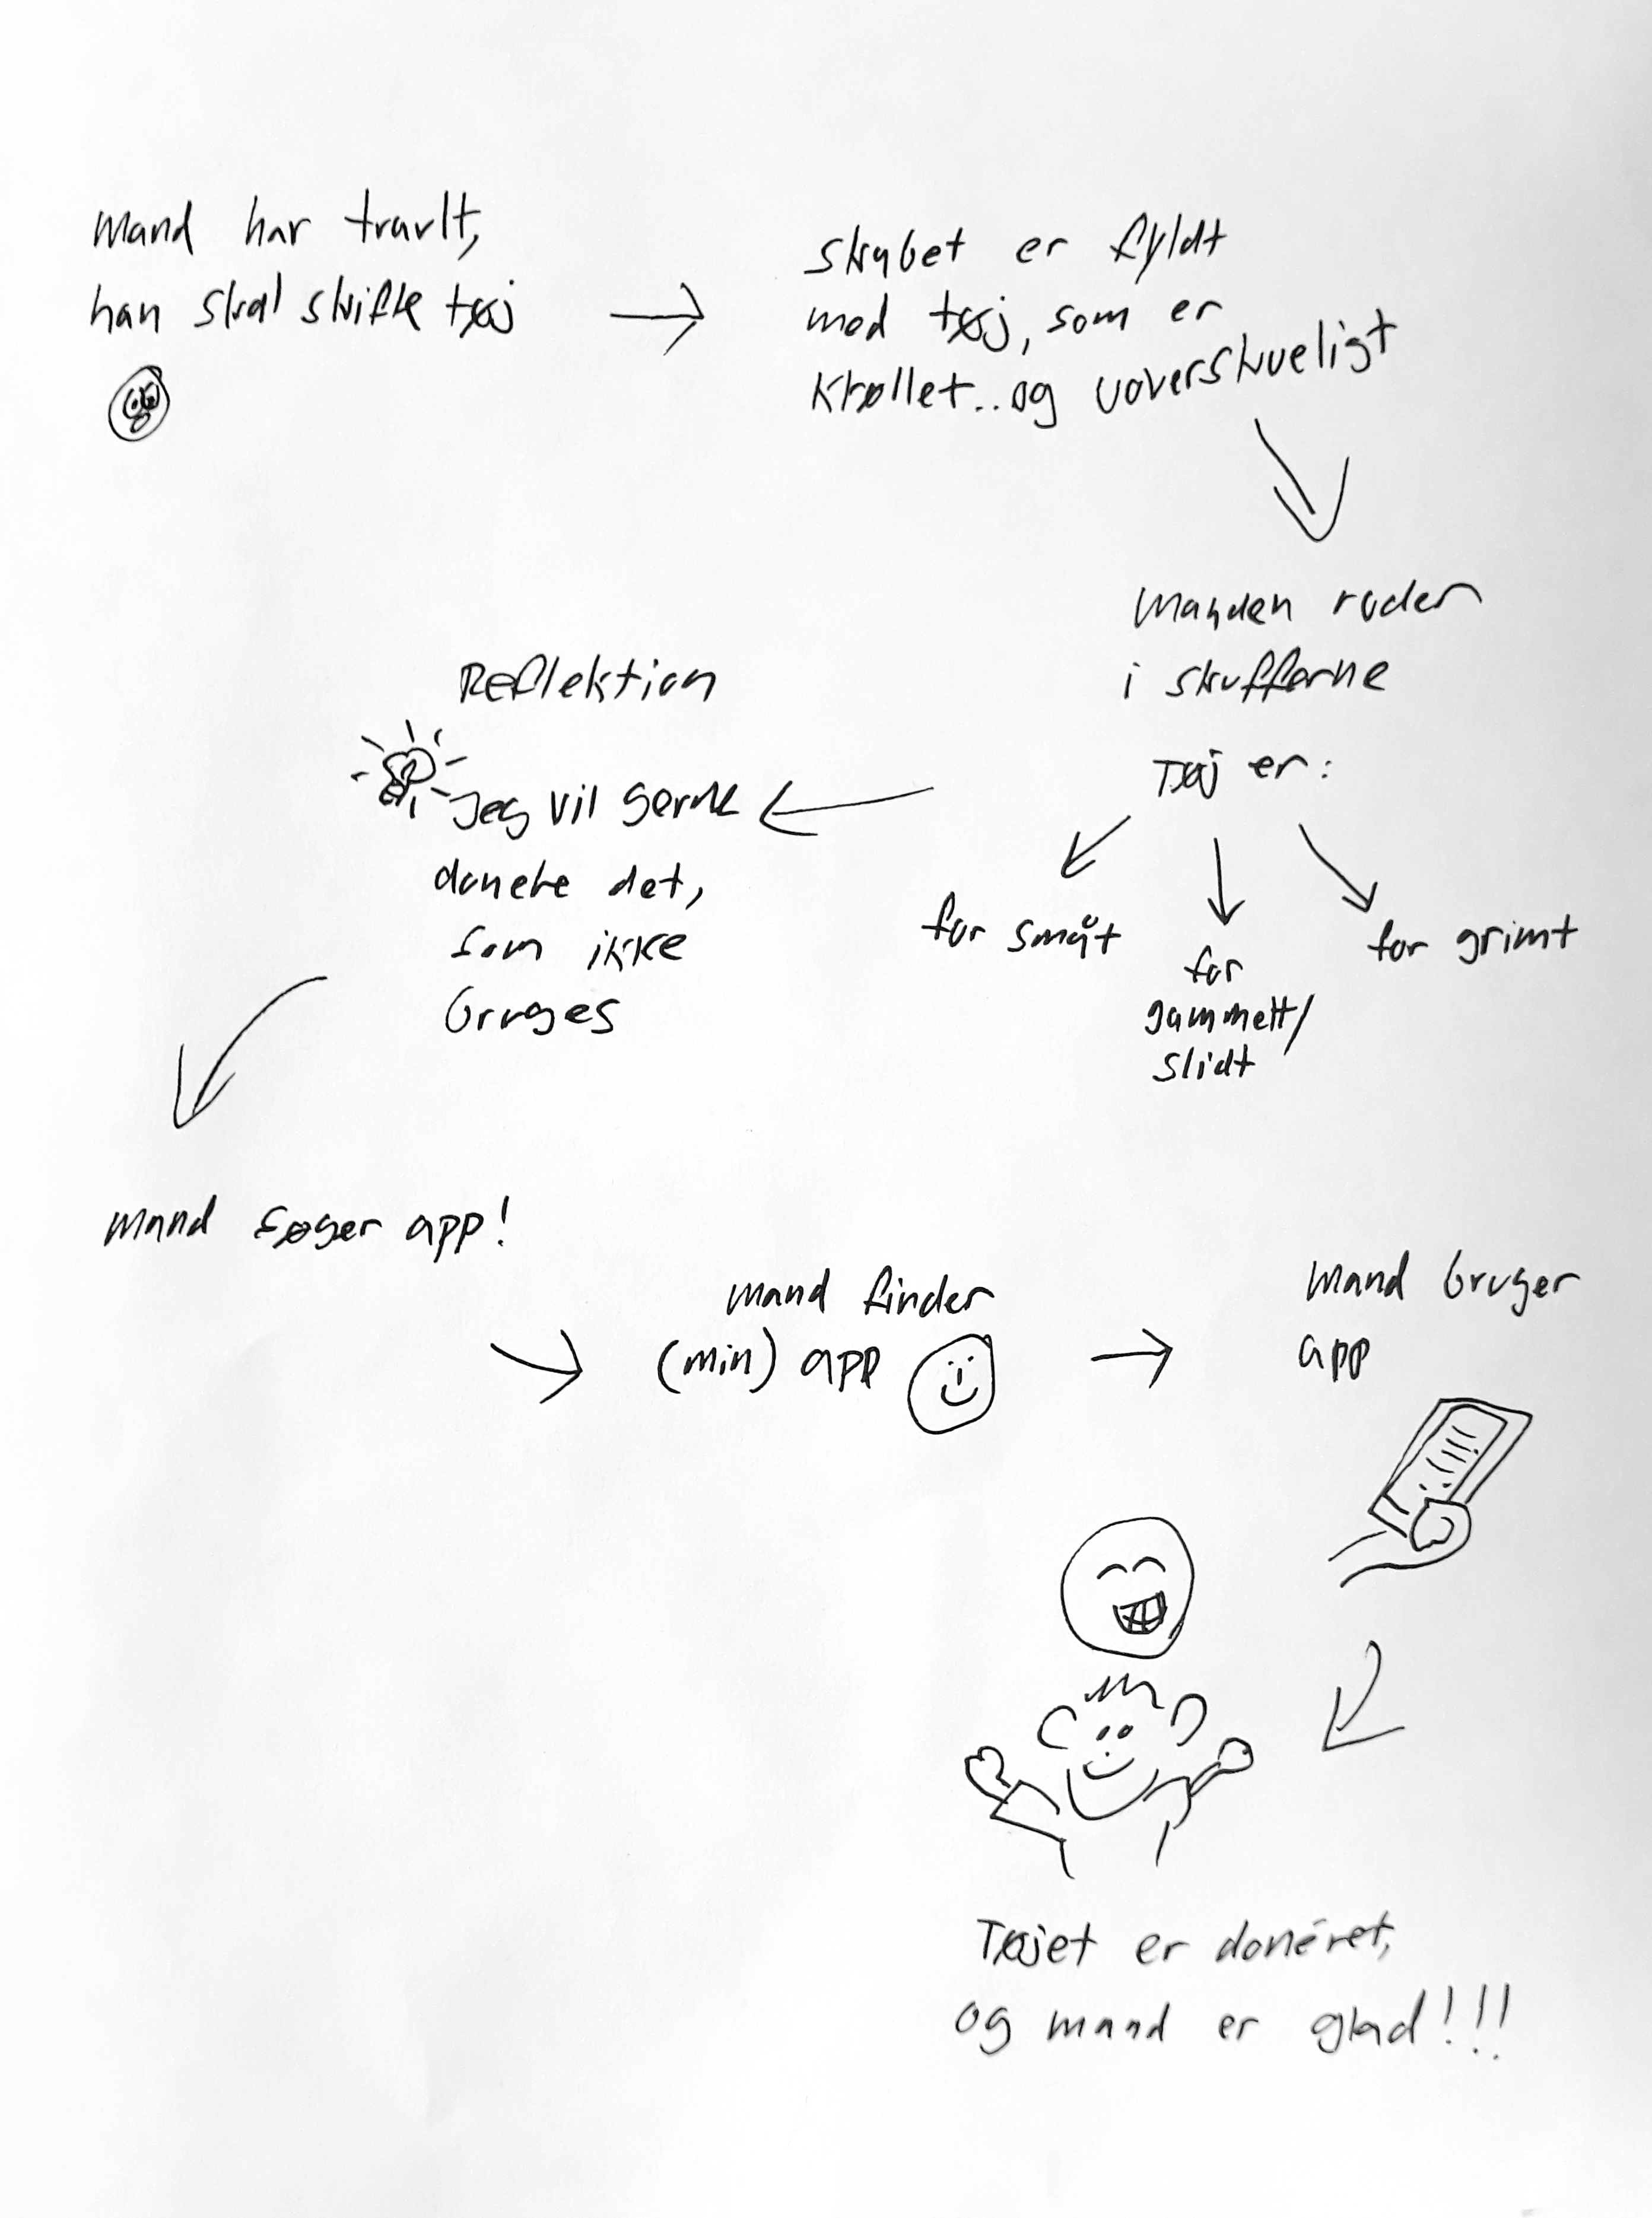 Mand har travlt,
han skal skifte tøj
Skabet er fyldt
med tøj, som er
krøllet.. og uoverskueligt
Manden roder
i skufferne
Tøj er:
for småt
for
gammelt/
slidt
for grimt
Reflektion
Jeg vil gerne
donere det,
som ikke
bruges
Mand søger app!
Mand finder
(min) app
Mand bruger
app
Tøjet er donéret,
og mand er glad!!!